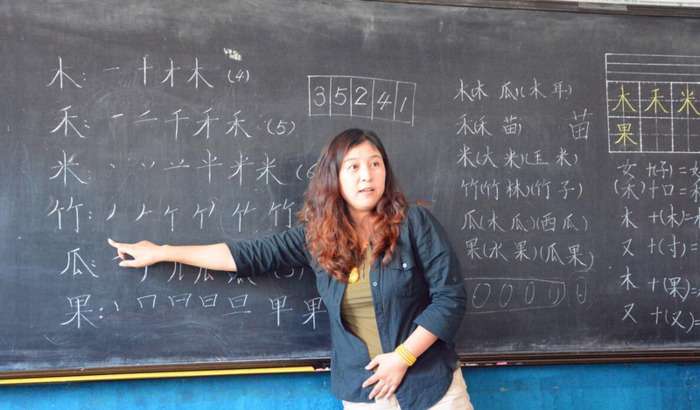 木: 一 十 才 木 (4)
禾: 一 二 千 禾 禾 (5)
米: 丶 丷 半 米 米 (6
竹:
瓜:
果: 丨 口 日 旦
3 5 2 4 1
木(木 瓜)(木 耳)
禾(禾 苗) 苗
米(大 米)(玉 米)
竹(竹 林)(竹 子)
瓜(木 瓜)(西 瓜)
果(水 果)(瓜 果)
木 禾 米
果
女 +(子)=
(禾)+ 口 =
木 +(木)=
又 +(寸)=
木 +(果)=
又 +(又)=